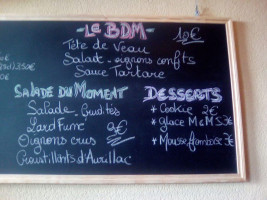 -Le BDM-
Tête de Veau 10€
Salait - oignons confits
Sauce Tartare
Salade du Moment
Salade - Crudités
Lard Fumé 9€
Oignons crus
Croustillants d'Aurillac
Desserts
* Cookie 2€
* glace M&M's 3€
* Mousse framboise 3€